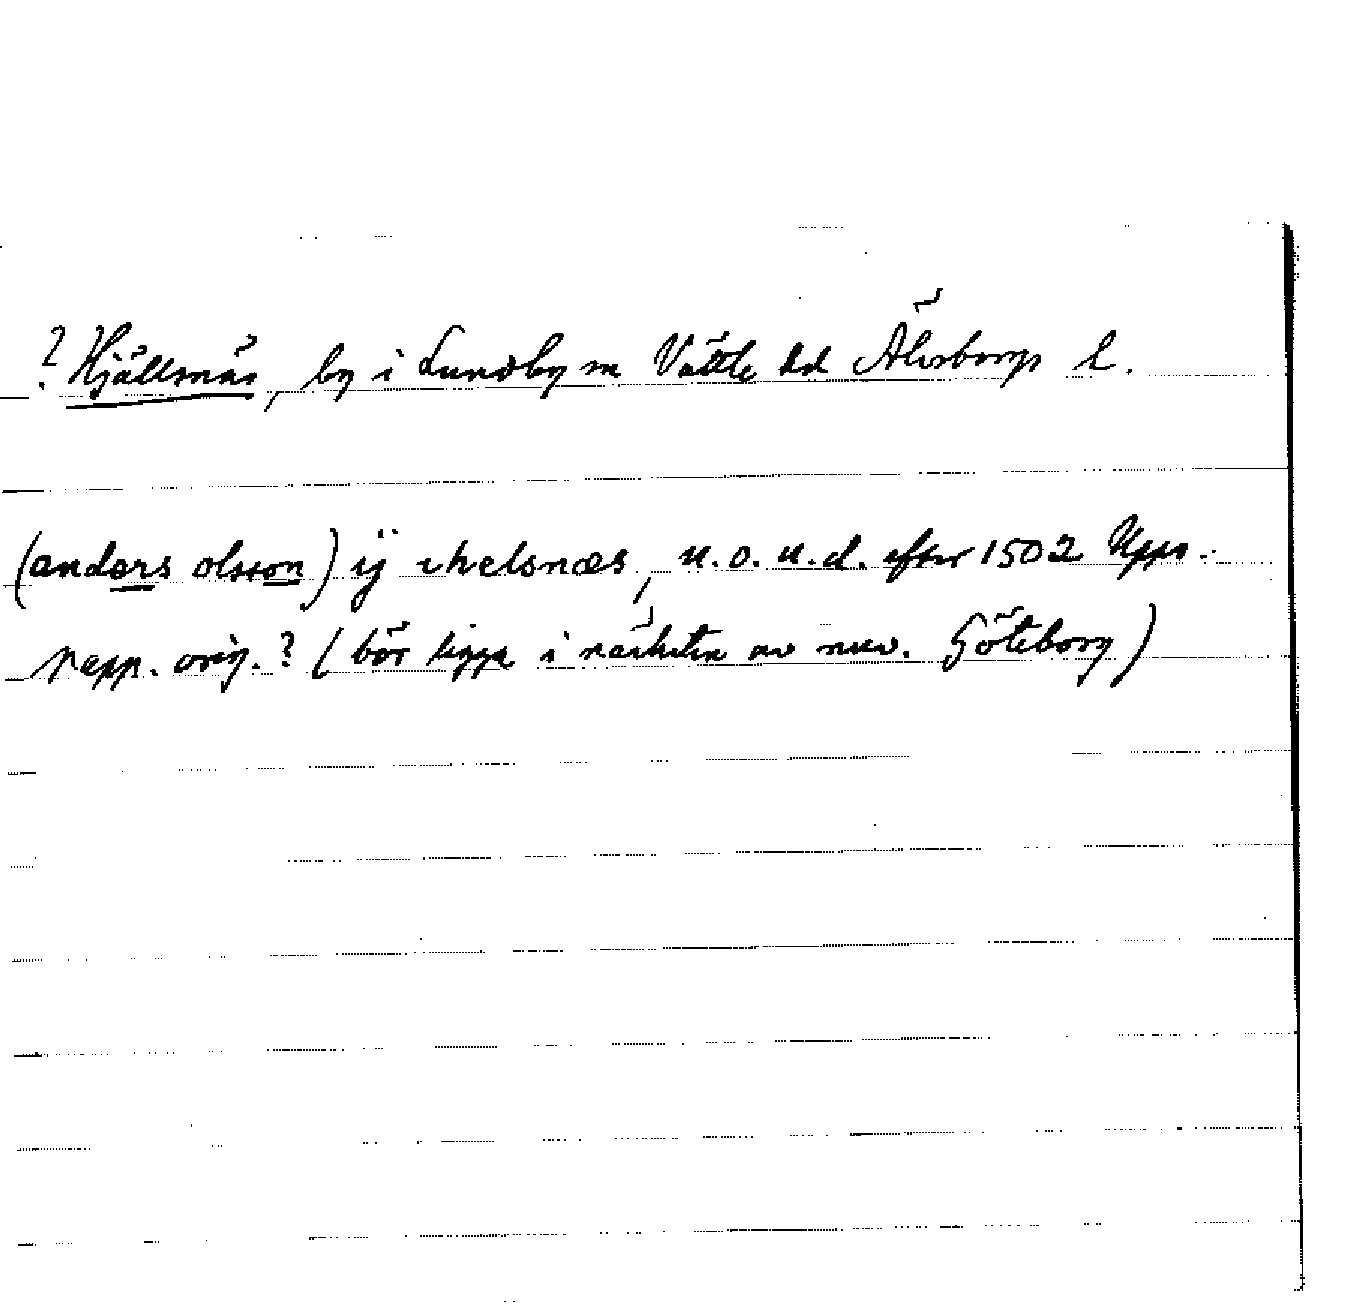 ? Hjällsnäs, by i Lundby sn Vättle hd Älvsborgs l.
(anders olsson) ij ihelsnæs, u.o. u.d. efter 1502 Upps.
papp. orig. ? (bör ligga i närheten av nuv. Göteborg)